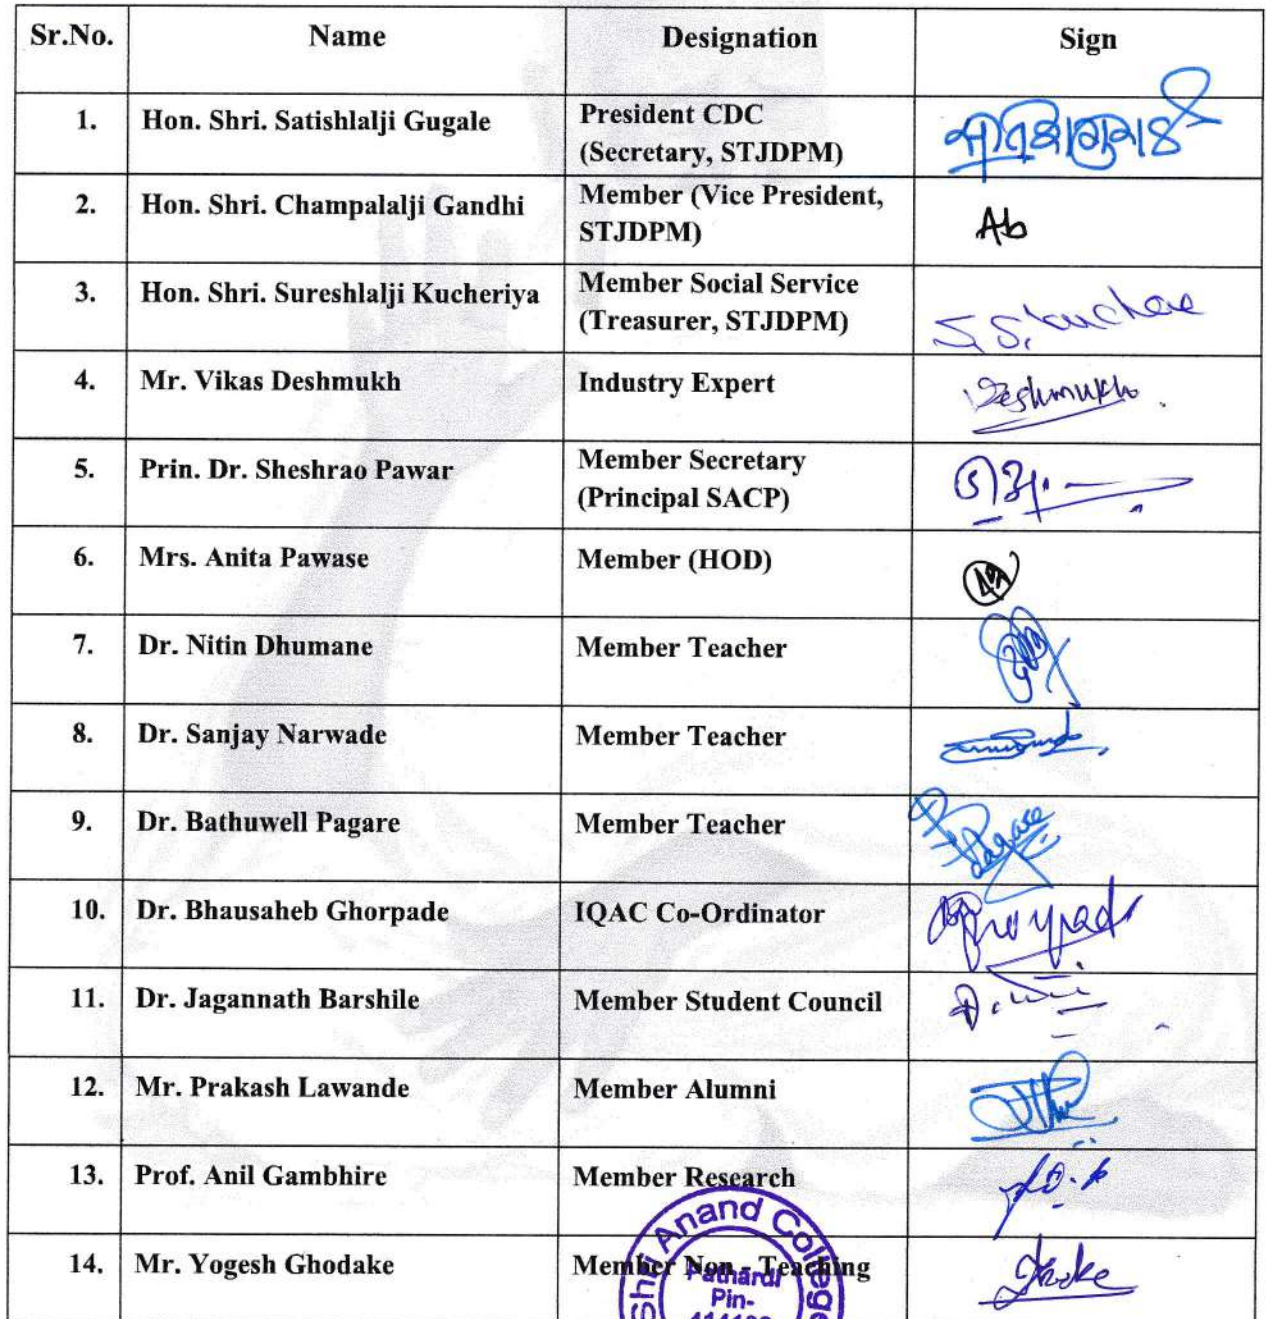 Sr.No. Name Designation Sign
1. Hon. Shri. Satishlalji Gugale President CDC
(Secretary, STJDPM)
2. Hon. Shri. Champalalji Gandhi Member (Vice President,
STJDPM)
Ab
3. Hon. Shri. Sureshlalji Kucheriya Member Social Service
(Treasurer, STJDPM)
4. Mr. Vikas Deshmukh Industry Expert Deshmukh
5. Prin. Dr. Sheshrao Pawar Member Secretary
(Principal SACP)
6. Mrs. Anita Pawase Member (HOD)
7. Dr. Nitin Dhumane Member Teacher
8. Dr. Sanjay Narwade Member Teacher
9. Dr. Bathuwell Pagare Member Teacher Pagare
10. Dr. Bhausaheb Ghorpade IQAC Co-Ordinator
11. Dr. Jagannath Barshile Member Student Council
12. Mr. Prakash Lawande Member Alumni
13. Prof. Anil Gambhire Member Research
14. Mr. Yogesh Ghodake Member Non - Teaching
Shri Anand College
Pathardi
Pin-